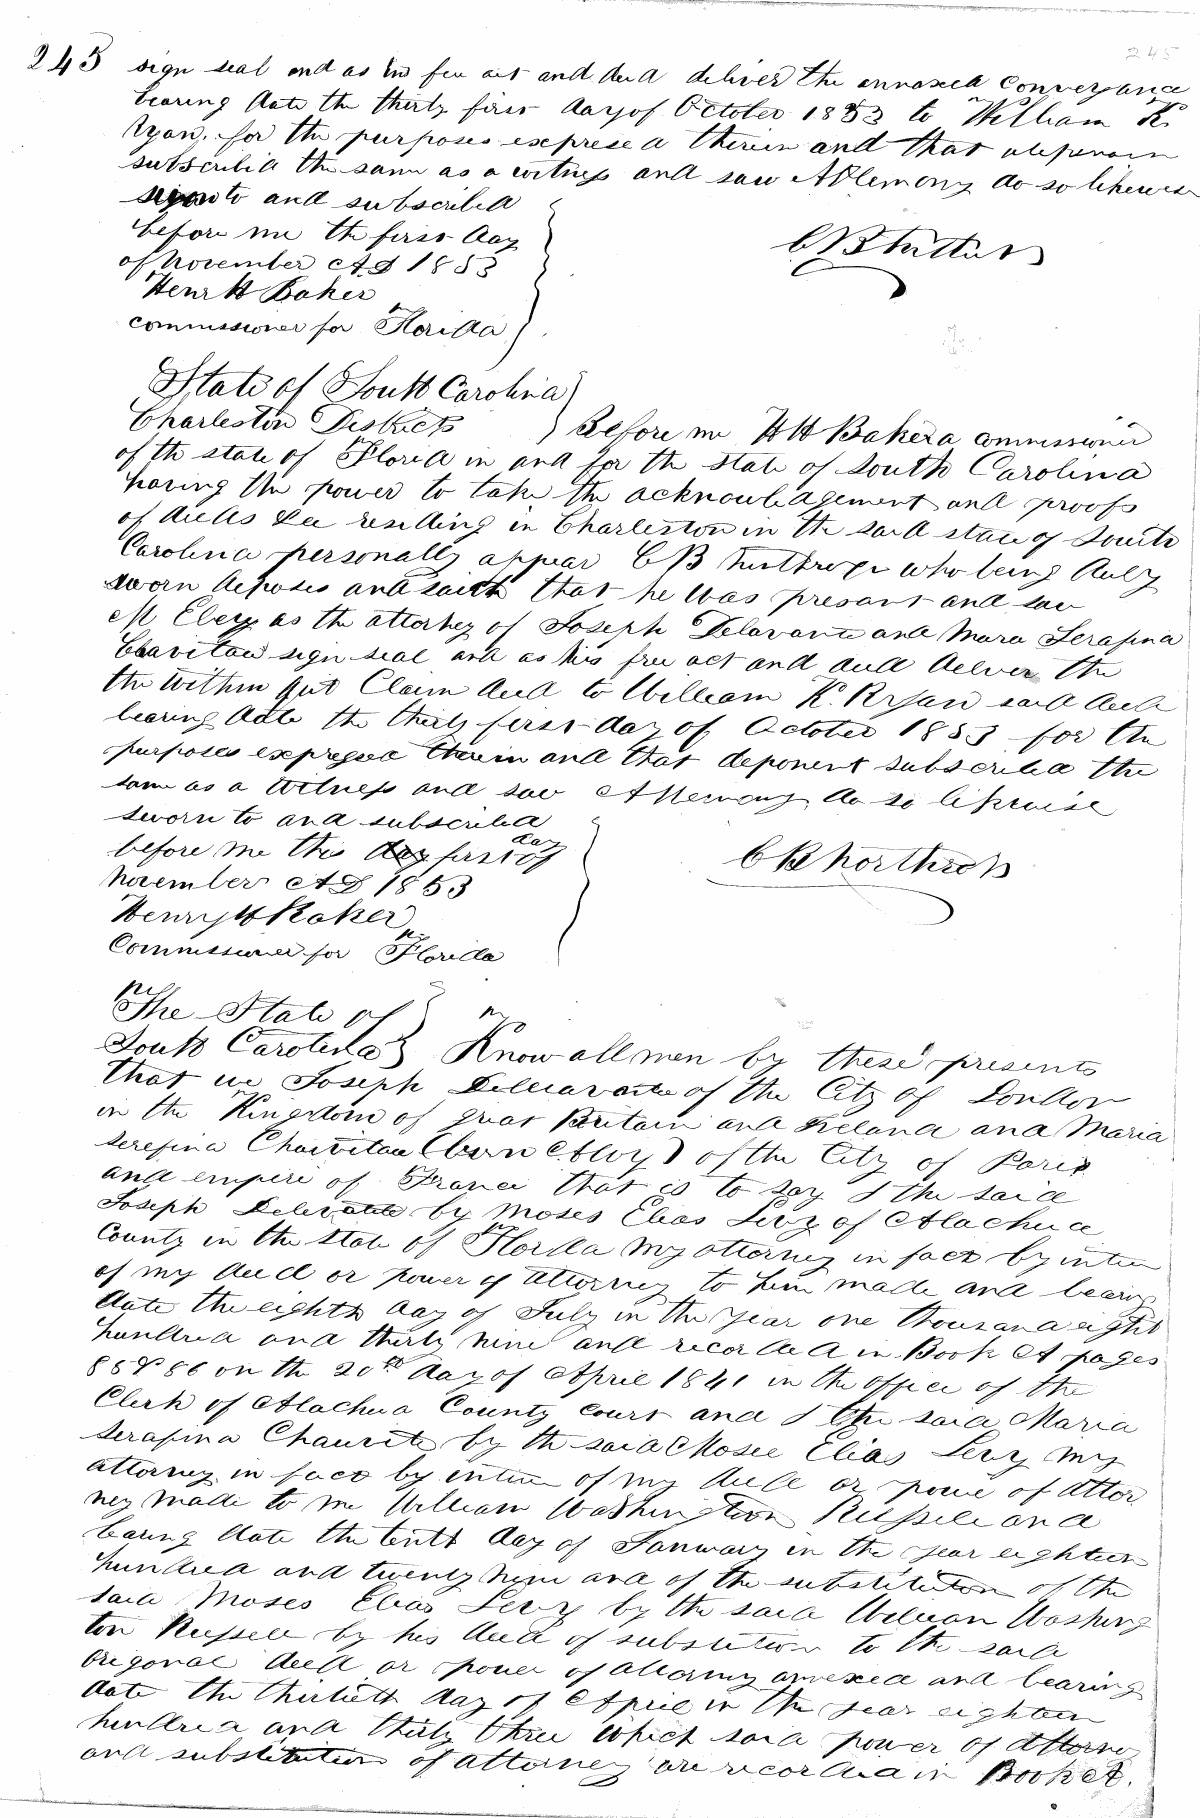 245
245
sign seal and as his free act and deed deliver the annexed conveyance
bearing date the thirty first day of October 1853 to William K.
Ryan, for the purposes expressed therein and that deponent
subscribed the same as a witness and saw do so likewise
to and subscribed
before me the first day
of November AD 1853
Henr H Baker
commissioner for Florida
State of South Carolina
Charleston Districts Before me HH Baker a commissioner
of the state of Florida in and for the state of South Carolina
having the power to take the acknowledgement and proofs
of deeds &ce residing in Charleston in the said state of South
Carolina personally appear CB who being duly
sworn deposes and saith that he was present and saw
M as the attorney of Joseph and Mara Serafina
sign seal and as his free act and deed deliver the
the within Quit Claim deed to William K. Ryan said deed
bearing date the thirty first day of October 1853 for the
purposes expressed therein and that deponent subscribed the
same as a witness and saw do so likewise
sworn to and subscribed
before me this day first day of
November AD 1853
Henry H Baker
Commissioner for Florida
CB Northrop
The State of
South Carolina Know all men by these presents
that we Joseph of the City of London
in the Kingdom of great Britain and Ireland and Maria
Serefina (born ) of the City of Paris
and empire of France that is to say I the said
Joseph by Moses Elias Levy of Alachua
County in the state of Florida my attorney in fact by
of my deed or power of attorney to him made and bearing
date the eighth day of July in the year one thousand eight
hundred and thirty nine and recorded in Book A pages
85 & 86 on the 20th day of April 1841 in the office of the
Clerk of Alachua County court and I the said Maria
Serafina by the said Mosee Elias Levy my
attorney in fact by of my deed or power of attor
ney made to me William Washington Russell and
bearing date the tenth day of January in the year eighteen
hundred and twenty nine and of the substitution of the
said Moses Elias Levy by the said William Washing
ton Russell by his deed of substution to the said
origonal deed or power of attorney annexed and bearing
date the thirtieth day of April in the year eighteen
hundred and thirty three which said power of attorney
and substitution of attorney are recorded in Book A.